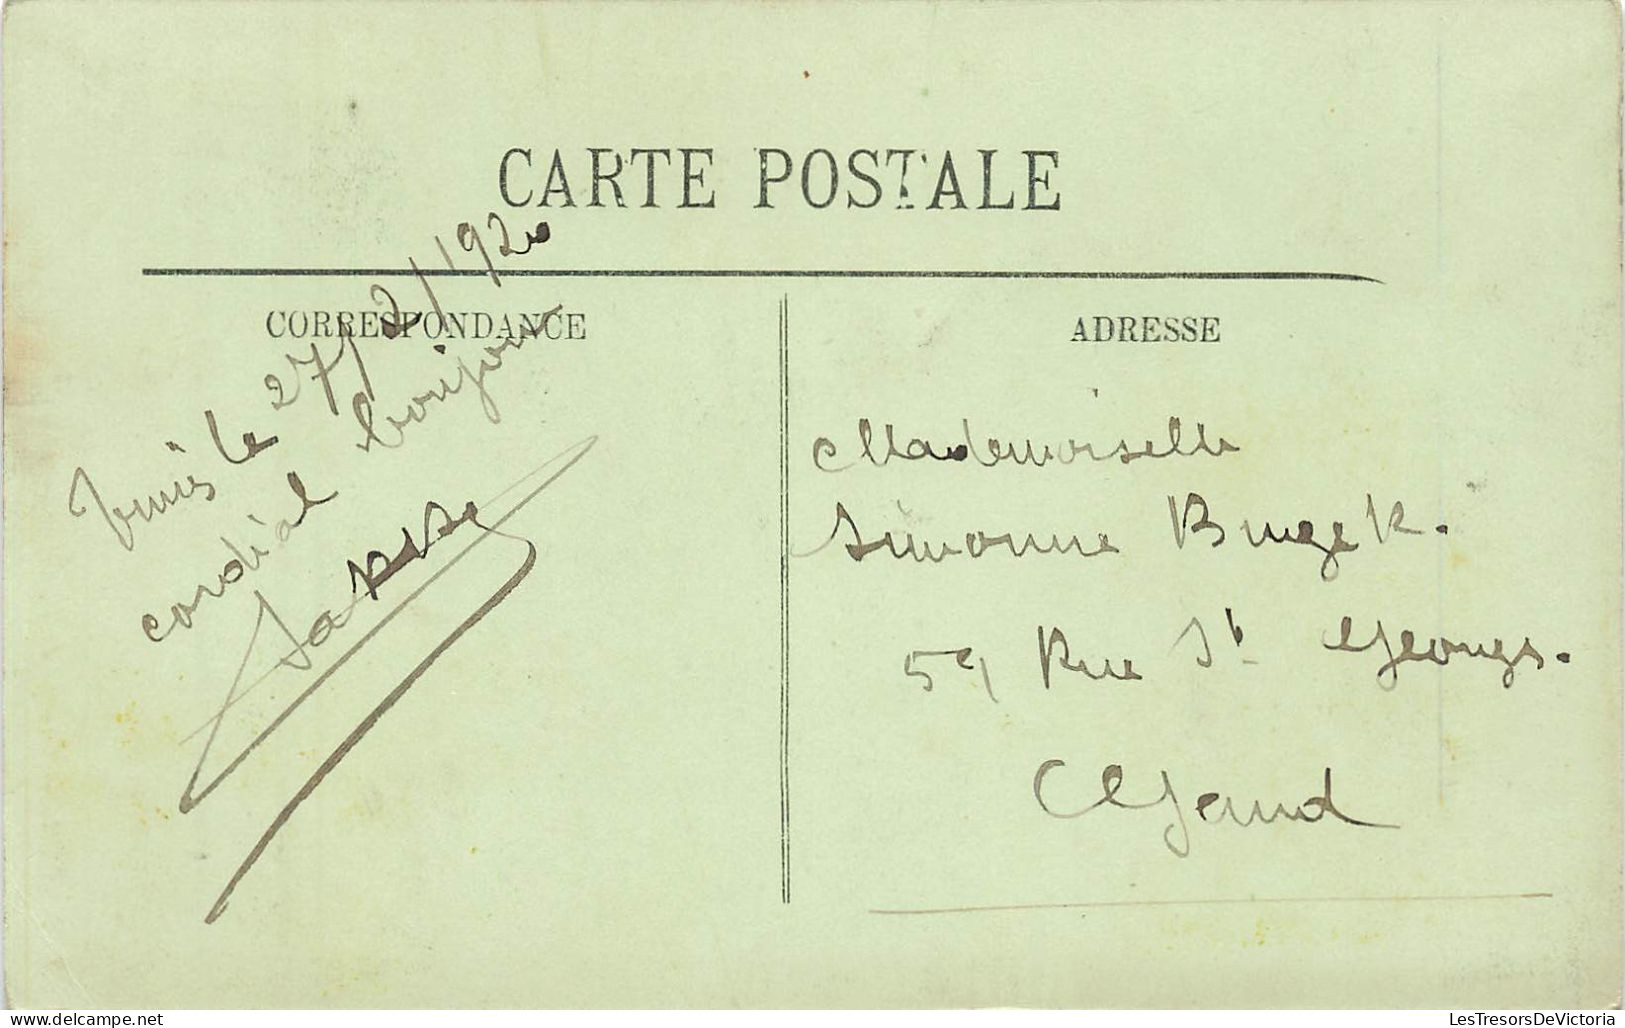 CARTE POSTALE
CORRESPONDANCE
Tunis le 27/2/1920
cordial bonjour
ADRESSE
Mademoiselle
Simonne
59 Rue St Georges.
Gand
LesTresorsDeVictoria